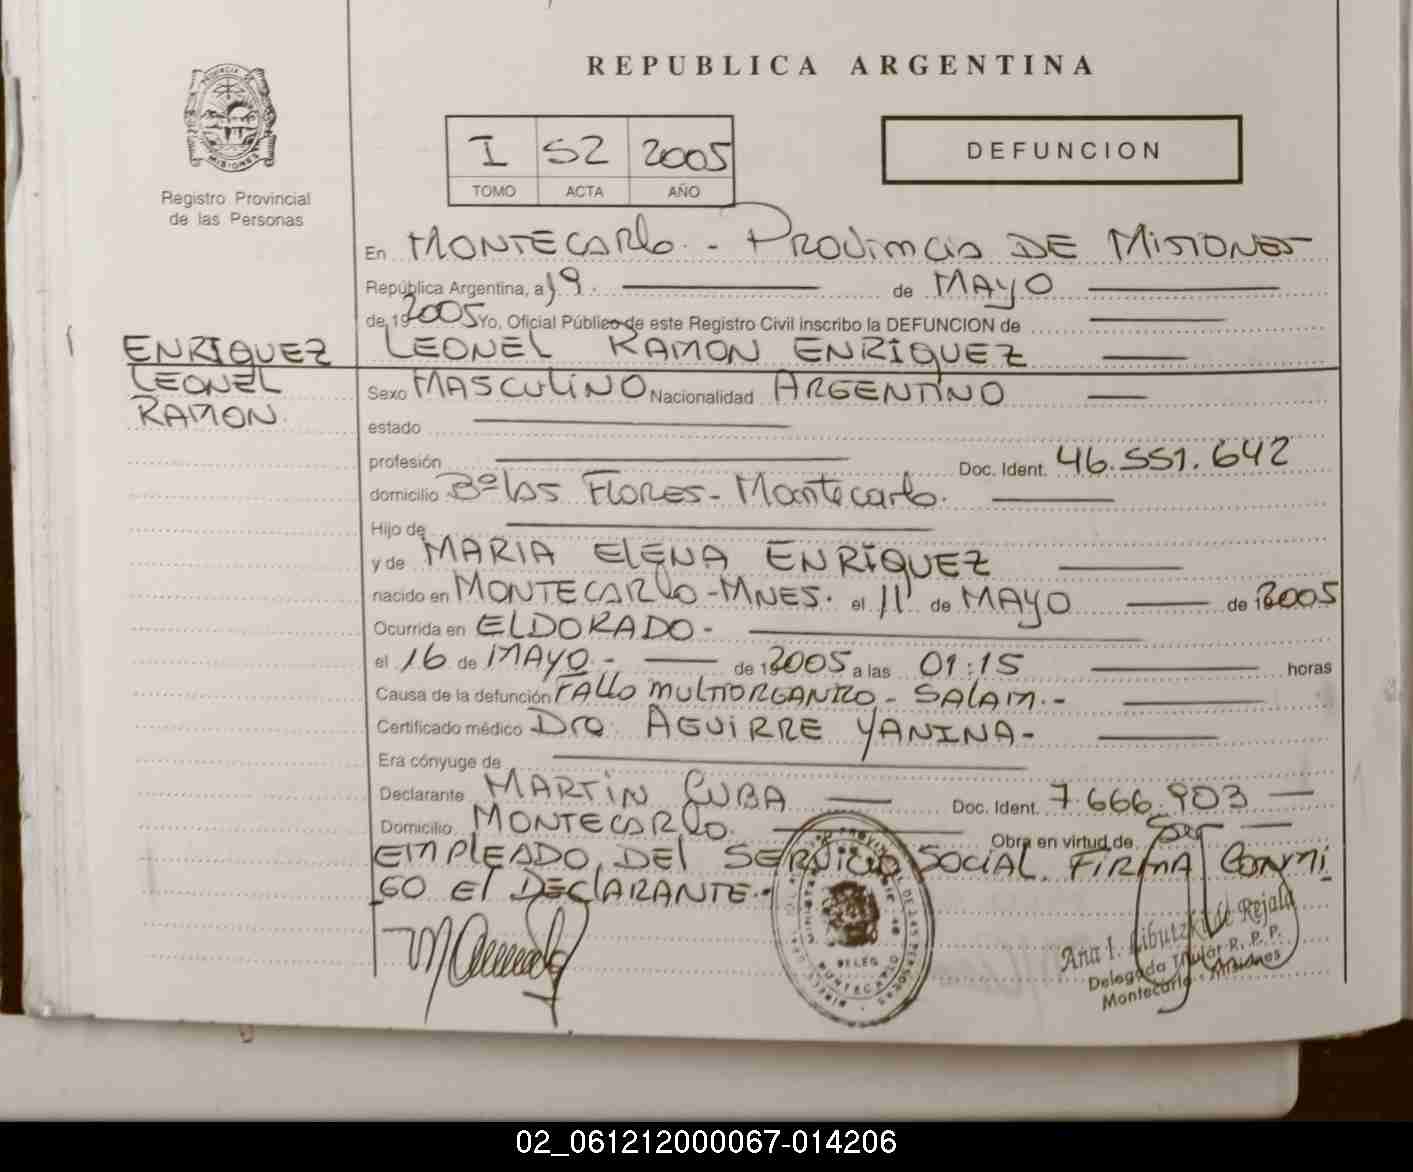 REPUBLICA ARGENTINA
I 52 2005
TOMO ACTA AÑO
DEFUNCION
PROVINCIA DE
MISIONES
Registro Provincial
de las Personas
En MONTECARLO. - PROVINCIA DE MISIONES
República Argentina, a 19. de MAYO
de 19 2005 Yo, Oficial Público de este Registro Civil inscribo la DEFUNCION de
ENRIQUEZ LEONEL RAMON ENRIQUEZ
LEONEL Sexo MASCULINO Nacionalidad ARGENTINO
RAMON. estado
profesión Doc. Ident. 46.551.642
domicilio Bº las FLORES - Montecarlo.
Hijo de
y de MARIA ELENA ENRIQUEZ
nacido en MONTECARLO - MNES. el 11 de MAYO de 19 2005
Ocurrida en ELDORADO -
el 16 de MAYO - de 19 2005 a las 01:15 horas
Causa de la defunción FALLO MULTIORGANICO - SALAM. -
Certificado médico Dra. AGUIRRE YANINA -
Era cónyuge de
Declarante MARTIN CUBA Doc. Ident. 7.666.903
Domicilio MONTECARLO. Obra en virtud de ser
EMPLEADO DEL SERVICIO SOCIAL. FIRMA CONMI
GO El DECLARANTE -
DELEG
MONTECARLO
Ana I. Libutzki de Rejala
Delegada Titular R. P. P.
Montecarlo - Misiones
02_061212000067-014206